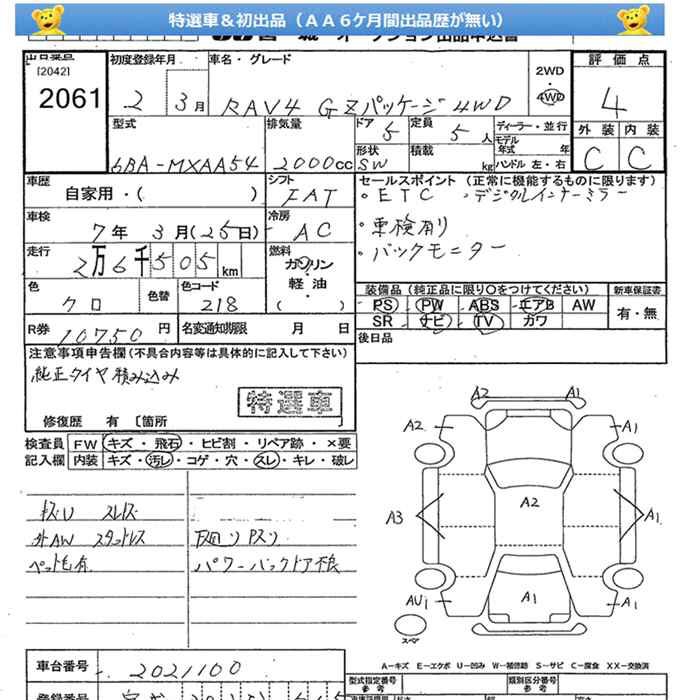 特選車＆初出品（ＡＡ６ケ月間出品歴が無い）
[2042]
2061
初度登録年月
2 3月
車名・グレード
RAV4 GZパッケージ 4WD
2WD
・
4WD
評価点
4
外装 内装
C C
型式
6BA-MXAA54
排気量
2000cc
ドア
5
定員
5人
形状
SW
積載
kg
ディーラー・並行
モデル年式 年
ハンドル 左・右
車歴
自家用・( )
シフト
FAT
セールスポイント (正常に機能するものに限ります)
・ETC ・デジタルインナーミラー
・車検有り
・バックモニター
車検
7年 3月(25日)
冷房
AC
走行
2万6千505km
燃料
ガソリン
・
軽・油
( )
色
クロ
色替
色コード
218
装備品 (純正品に限り○をつけてください)
PS PW ABS エアB AW
SR ナビ TV カワ
新車保証書
有・無
R券
10750円
名変通知期限 月 日
後日品
注意事項申告欄(不具合内容等は具体的に記入して下さい)
純正タイヤ積み込み
特選車
修復歴 有 〔箇所 〕
検査員記入欄
FW キズ・飛石・ヒビ割・リペア跡・×要
内装 キズ・汚レ・コゲ・穴・スレ・キレ・破レ
キズU スレキズ
外AW スタッドレス
ペット毛有
下回りPスリ
パワーバックドア検
A2 A1
A2 A1
A3 A2 A1
AU1 A1 A1
スペア
A－キズ E－エクボ U－凹み W－補修跡 S－サビ C－腐食 XX－交換済
車台番号
2021100
登録番号
型式指定番号
参考
類別区分番号
参考